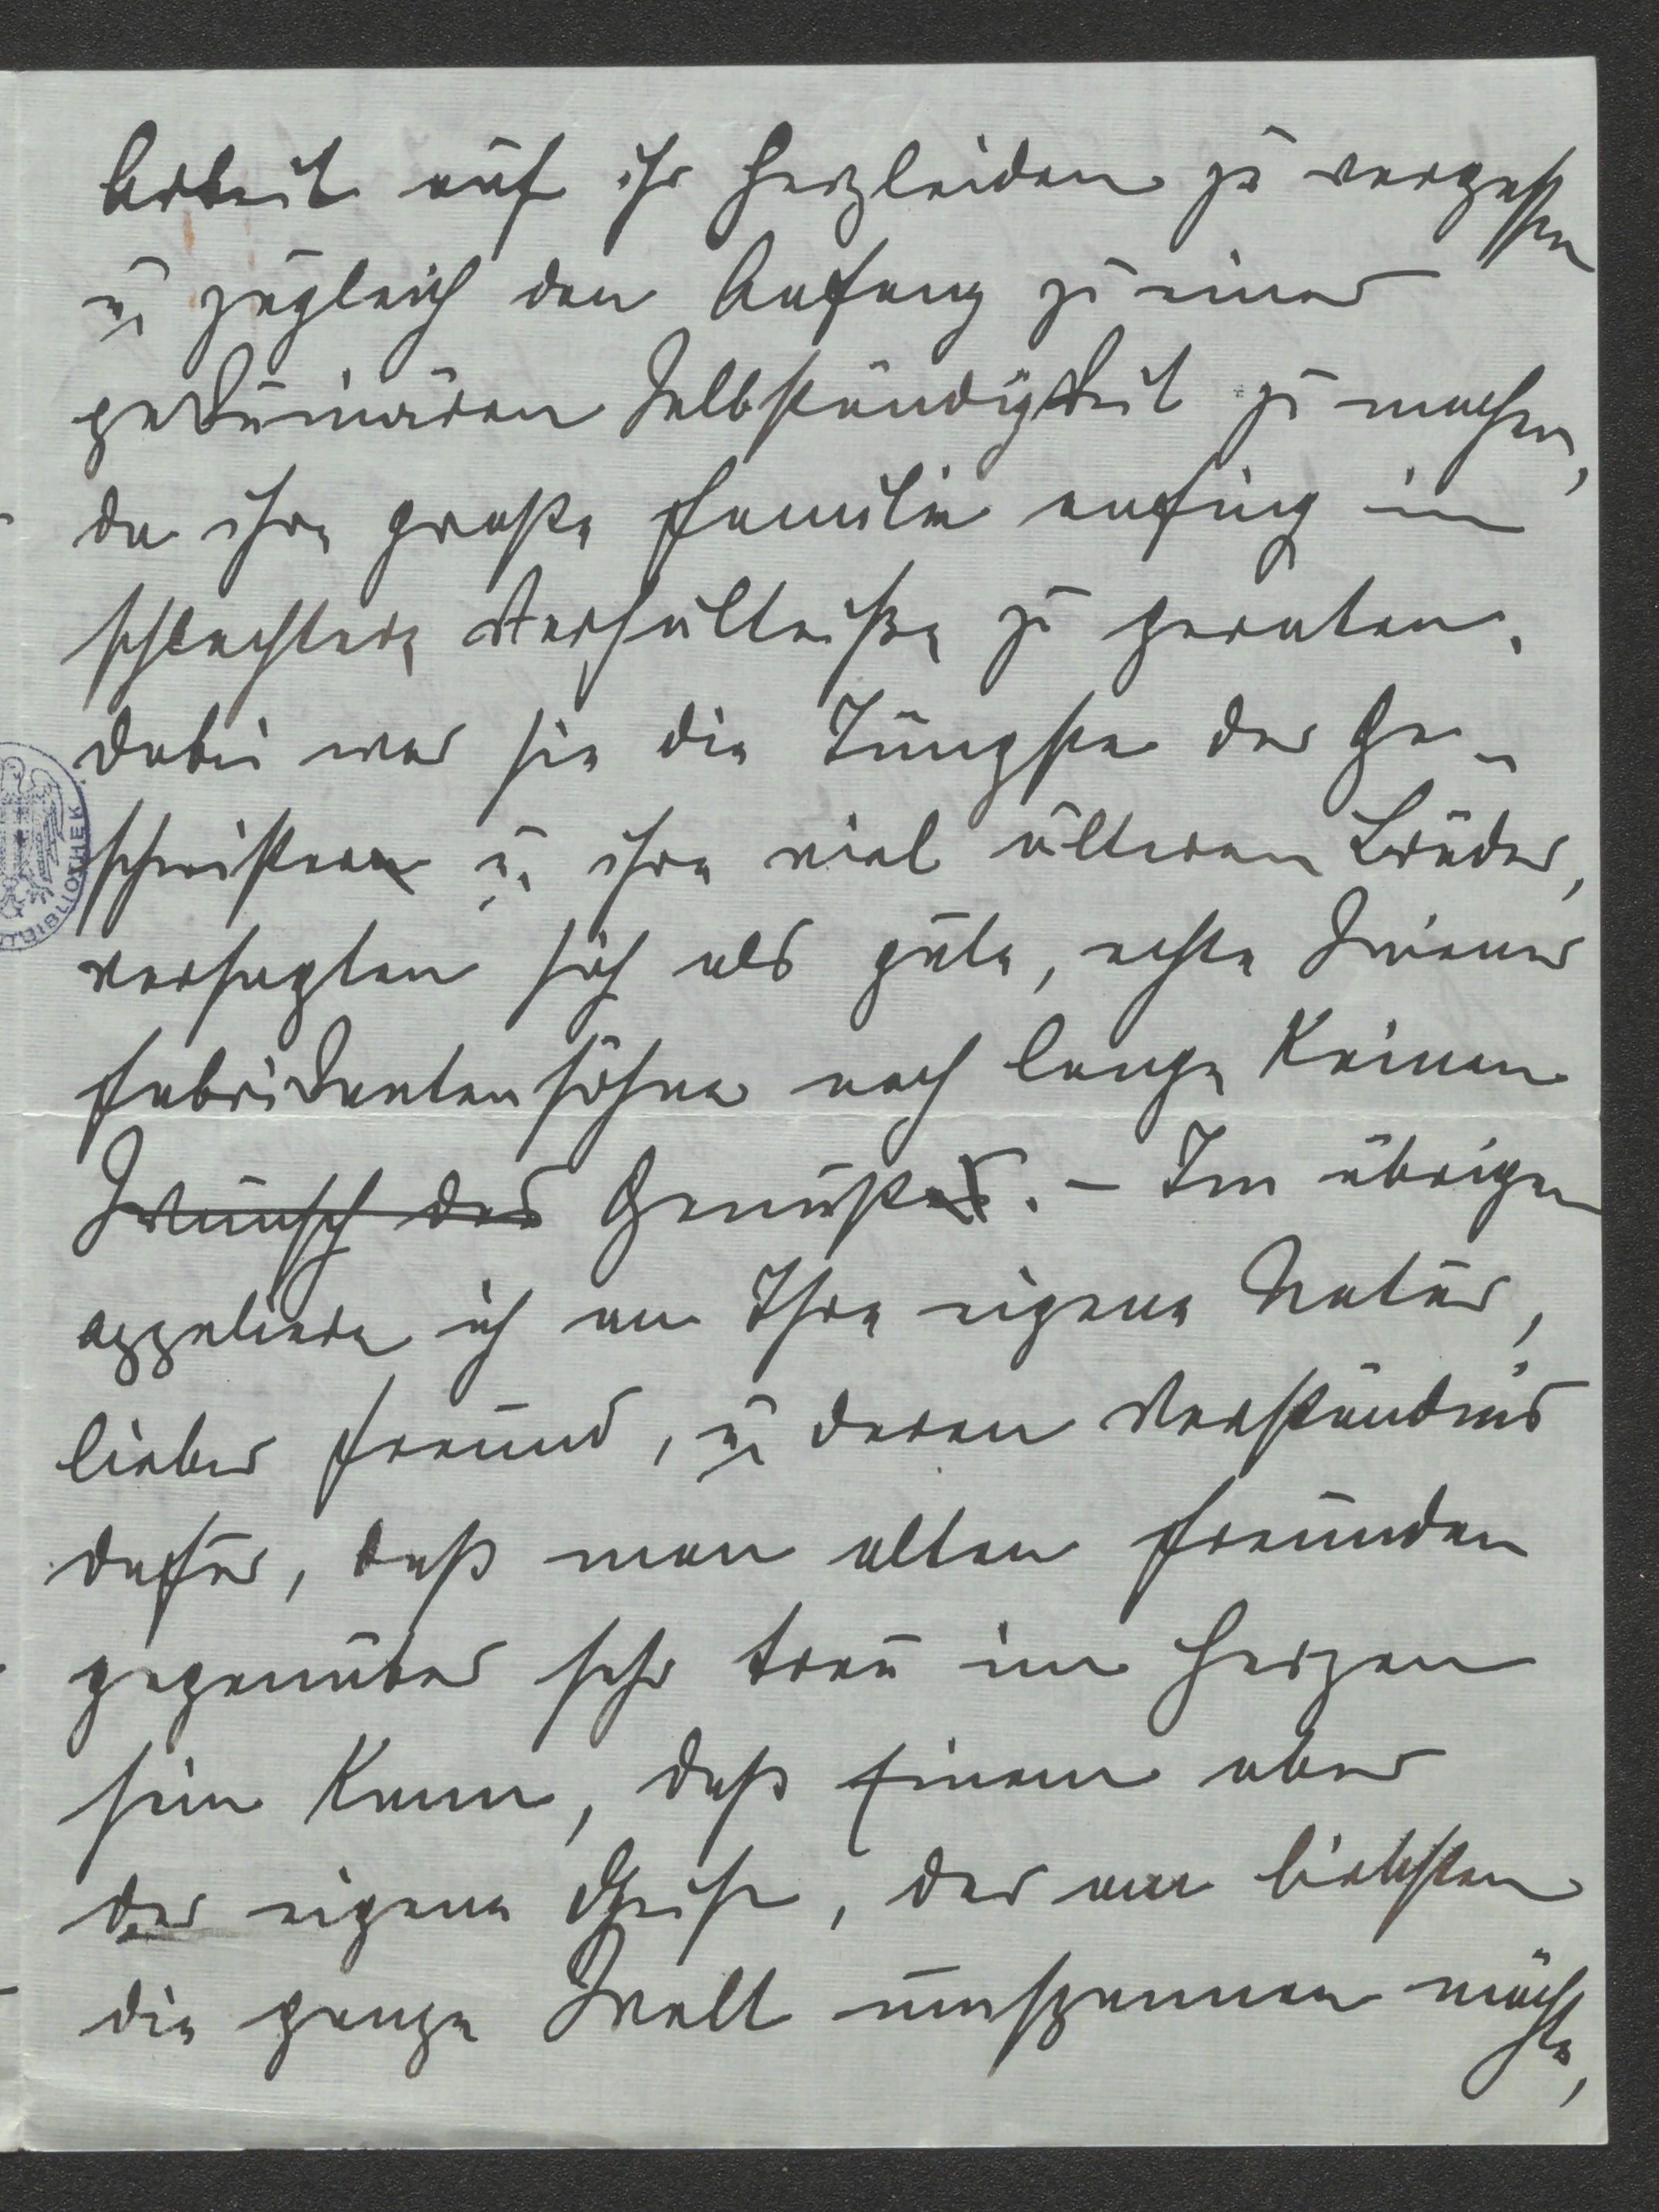 Arbeit auf ihr Herzleiden zu vergessen
u. zugleich den Anfang zu einer
pekuniären Selbständigkeit zu machen,
da ihre große Familie anfing in
schlechtere Verhältniße zu geraten.
Dabei war sie die Jüngste der Ge-
schwister u. ihre viel älteren Brüder,
versagten sich als gute, echte Wiener
Fabrikantensöhne noch lange keinen
Wunsch des Genußes. – Im übrigen
appeliere ich an Ihre eigene Natur,
lieber Freund, u. deren Verständnis
dafür, daß man alten Freunden
gegenüber sehr treu im Herzen
sein kann, daß Einem aber
der eigene Geist, der am liebsten
die ganze Welt umspannen möchte,
BIBLIOTHEK